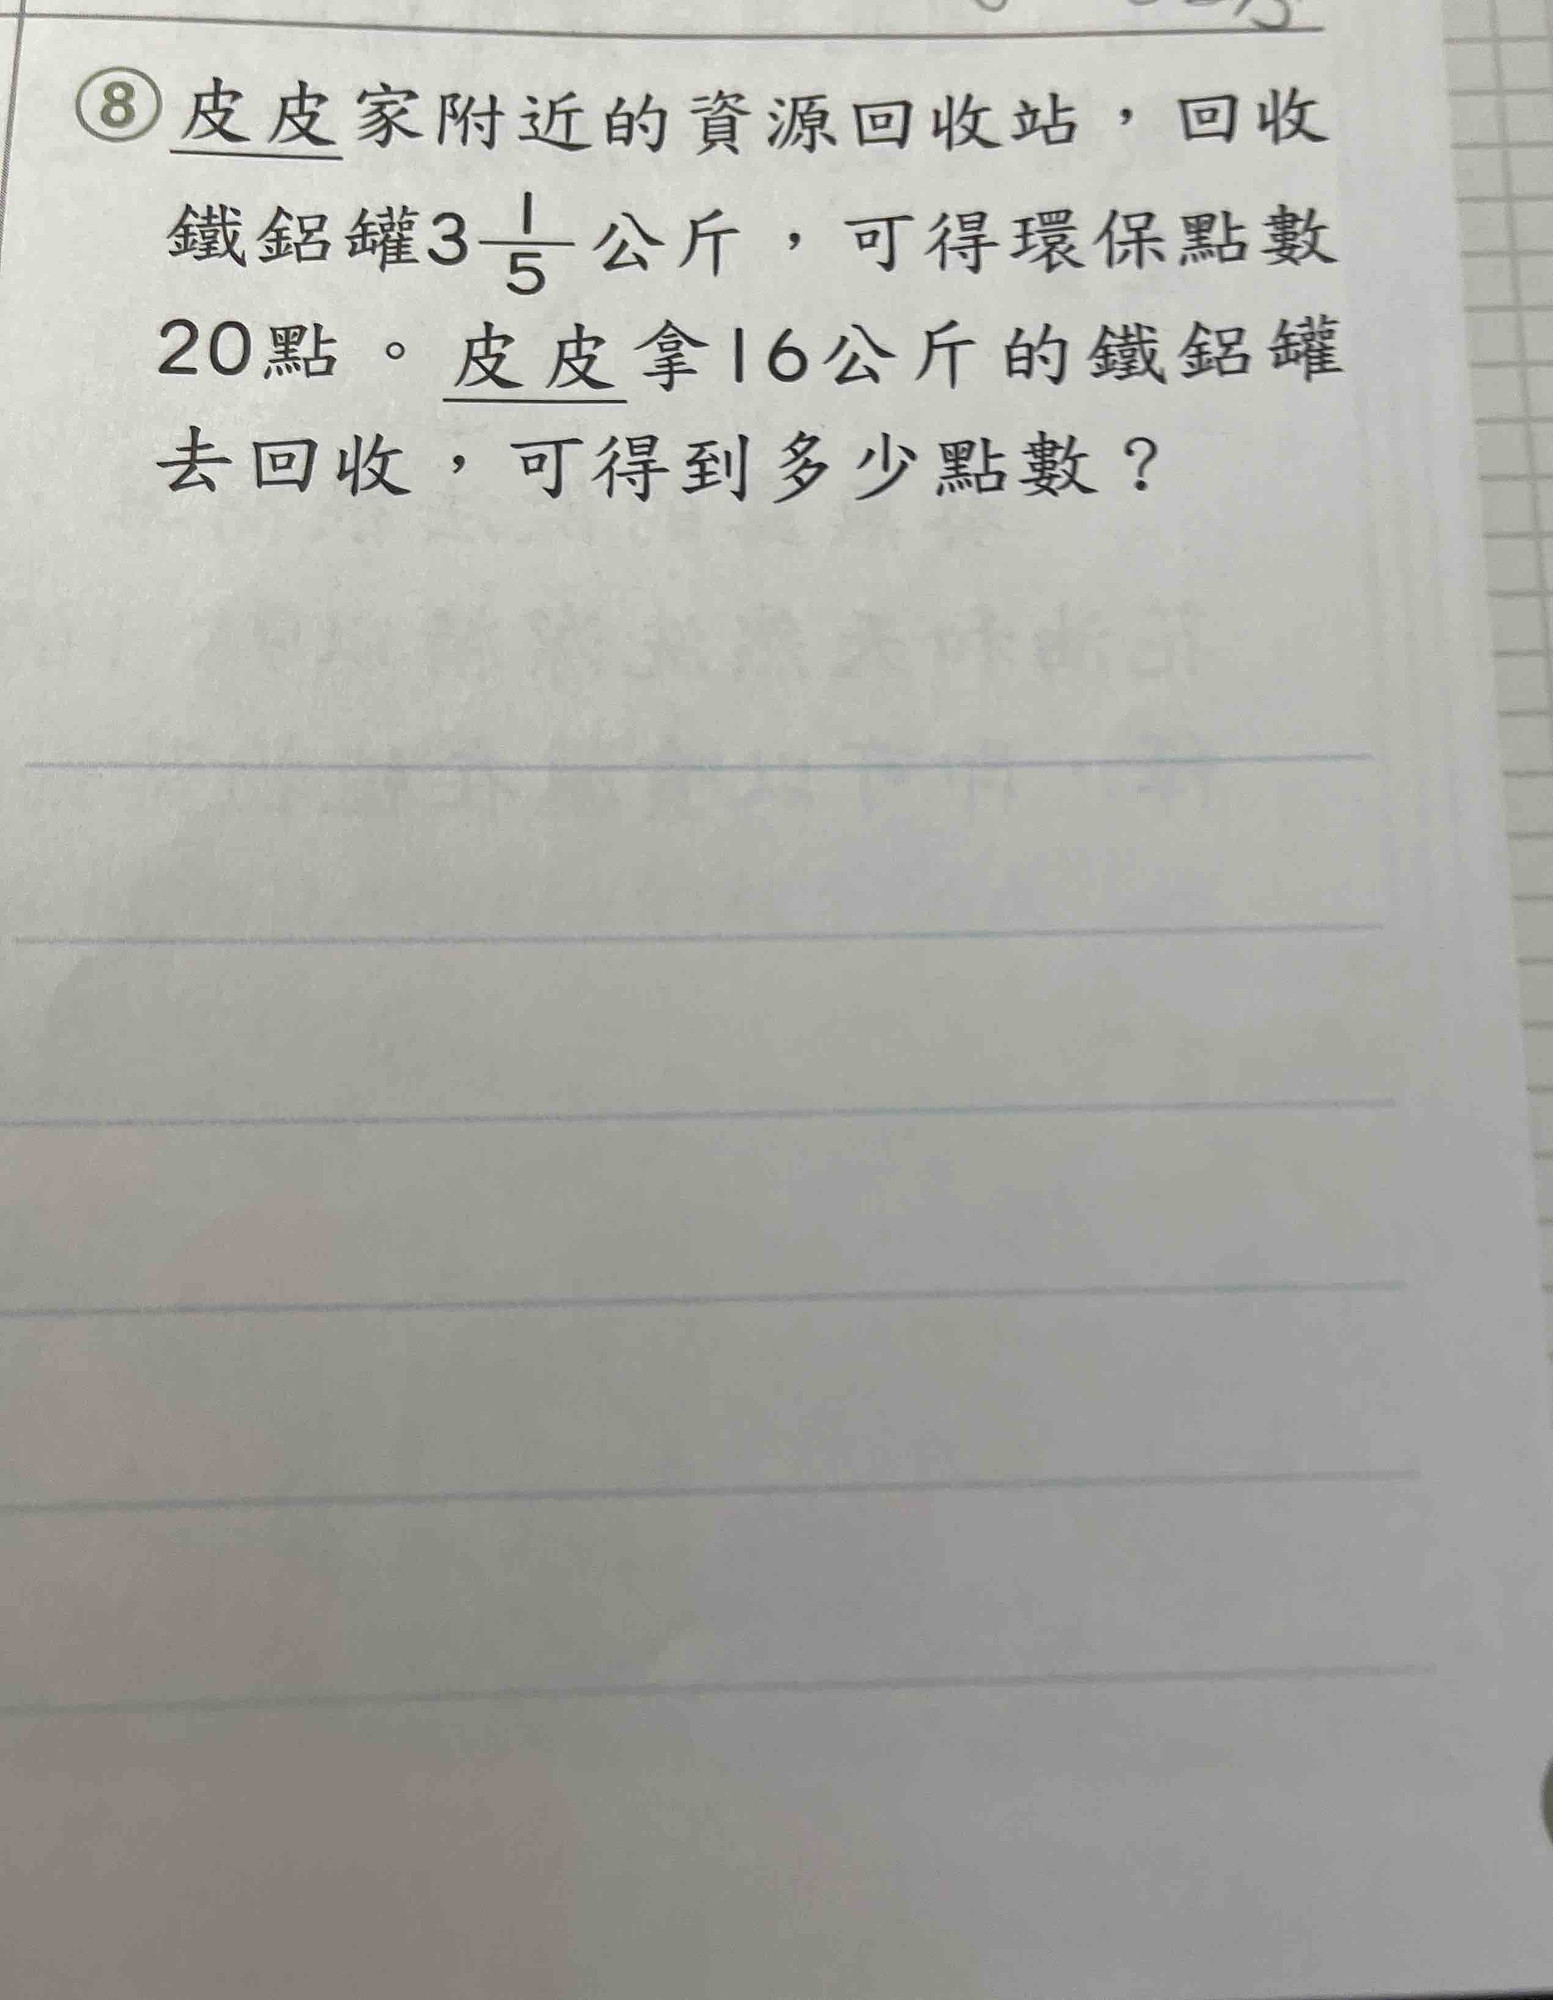 ⑧皮皮家附近的資源回收站，回收
鐵鋁罐3 1/5 公斤，可得環保點數
20點。皮皮拿16公斤的鐵鋁罐
去回收，可得到多少點數？